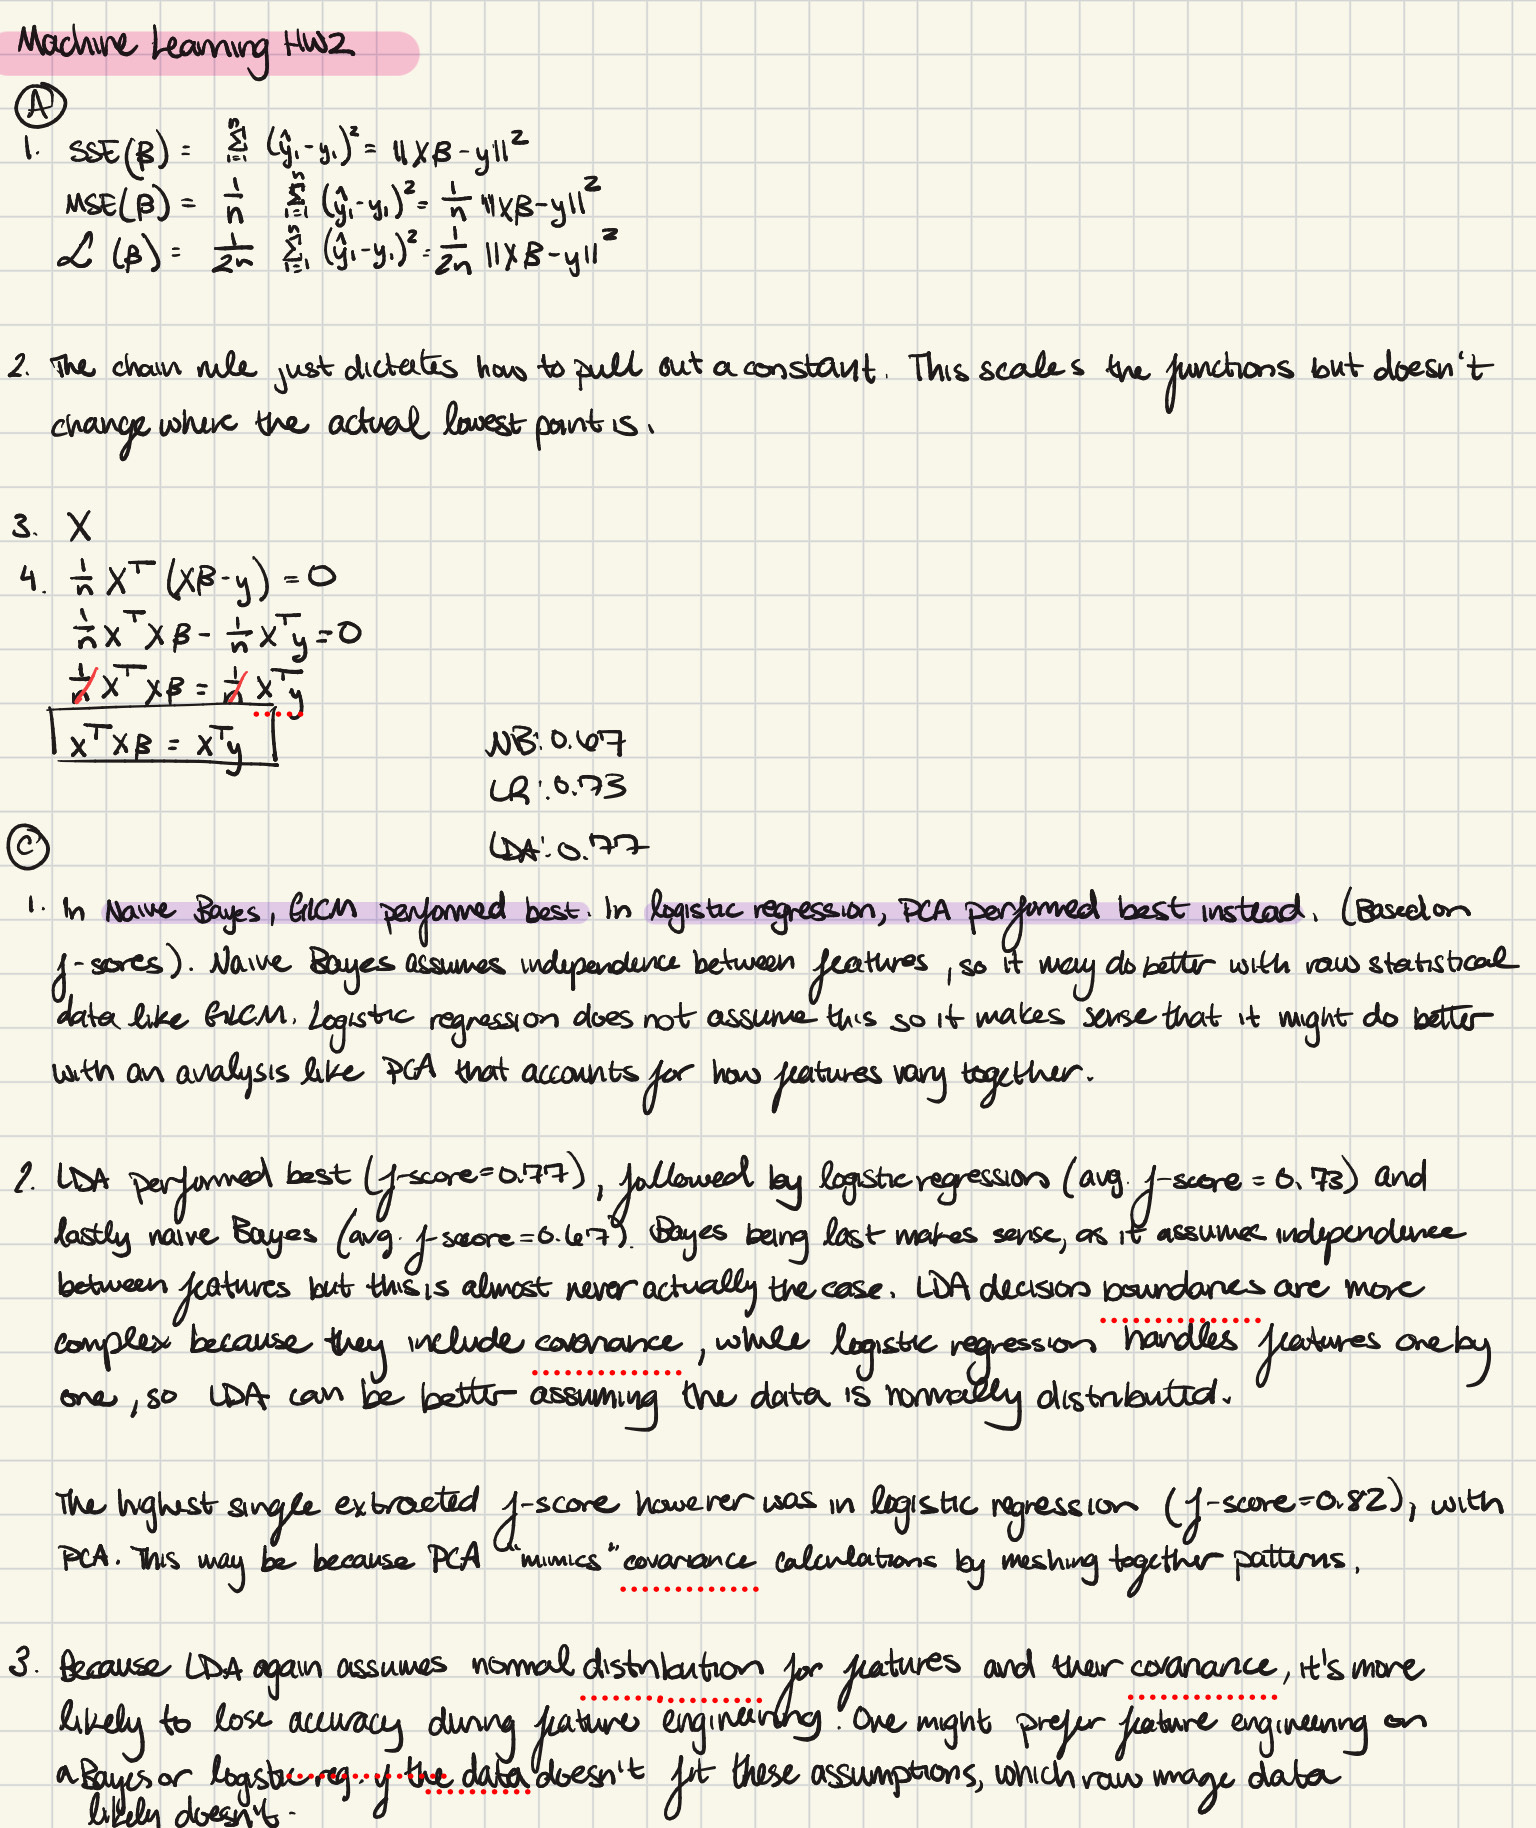 Machine Learning HW2
A
1. SSE(β) = Σᵢ₌₁ⁿ (ŷᵢ - yᵢ)² = ||Xβ - y||²
MSE(β) = 1/n Σᵢ₌₁ⁿ (ŷᵢ - yᵢ)² = 1/n ||Xβ - y||²
ℒ(β) = 1/2n Σᵢ₌₁ⁿ (ŷᵢ - yᵢ)² = 1/2n ||Xβ - y||²
2. The chain rule just dictates how to pull out a constant. This scales the functions but doesn't
change where the actual lowest point is.
3. X
4. 1/n Xᵀ (Xβ - y) = 0
1/n XᵀXβ - 1/n Xᵀy = 0
1/n XᵀXβ = 1/n Xᵀy
XᵀXβ = Xᵀy
NB: 0.67
LR: 0.73
LDA: 0.77
C
1. In Naive Bayes, GLCM performed best. In logistic regression, PCA performed best instead. (Based on
f-scores). Naive Bayes assumes independence between features, so it may do better with raw statistical
data like GLCM. Logistic regression does not assume this so it makes sense that it might do better
with an analysis like PCA that accounts for how features vary together.
2. LDA performed best (f-score=0.77), followed by logistic regression (avg. f-score = 0.73) and
lastly naive Bayes (avg. f-score=0.67). Bayes being last makes sense, as it assumes independence
between features but this is almost never actually the case. LDA decision boundaries are more
complex because they include covariance, while logistic regression handles features one by
one, so LDA can be better assuming the data is normally distributed.
The highest single extracted f-score however was in logistic regression (f-score=0.82), with
PCA. This may be because PCA "mimics" covariance calculations by meshing together patterns.
3. Because LDA again assumes normal distribution for features and their covariance, it's more
likely to lose accuracy during feature engineering. One might prefer feature engineering on
a Bayes or logistic reg. if the data doesn't fit these assumptions, which raw image data
likely doesn't.